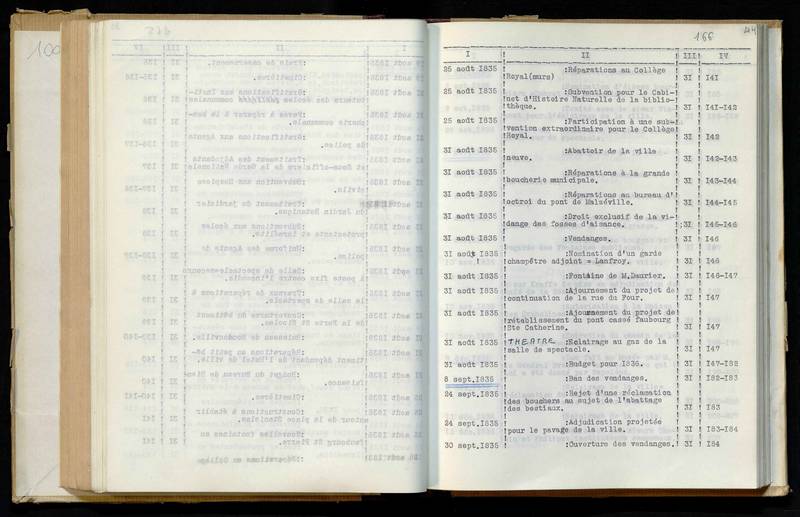 166
I II III IV
25 août 1835 :Réparations au Collège
Royal(murs) 31 141
25 août 1835 :Subvention pour le Cabi-
net d'Histoire Naturelle de la biblio-
thèque. 31 141-142
25 août 1835 :Participation à une sub-
vention extraordinaire pour le Collège
Royal. 31 142
31 août 1835 :Abattoir de la ville
neuve. 31 142-143
31 août 1835 :Réparations à la grande
boucherie municipale. 31 143-144
31 août 1835 :Réparations au bureau d'
octroi du pont de Malzéville. 31 144-145
31 août 1835 :Droit exclusif de la vi-
dange des fosses d'aisance. 31 145-146
31 août 1835 :Vendanges. 31 146
31 août 1835 :Nomination d'un garde
champêtre adjoint = Lanfroy. 31 146
31 août 1835 :Fontaine de M.Daurier. 31 146-147
31 août 1835 :Ajournement du projet de
continuation de la rue du Four. 31 147
31 août 1835 :Ajournement du projet de
rétablissement du pont cassé faubourg
Ste Catherine. 31 147
31 août 1835 THEATRE :Eclairage au gaz de la
salle de spectacle. 31 147
31 août 1835 :Budget pour 1836. 31 147-182
8 sept.1835 :Ban des vendanges. 31 182-183
24 sept.1835 :Rejet d'une réclamation
des bouchers au sujet de l'abattage
des bestiaux. 31 183
24 sept.1835 :Adjudication projetée
pour le pavage de la ville. 31 183-184
30 sept.1835 :Ouverture des vendanges. 31 184